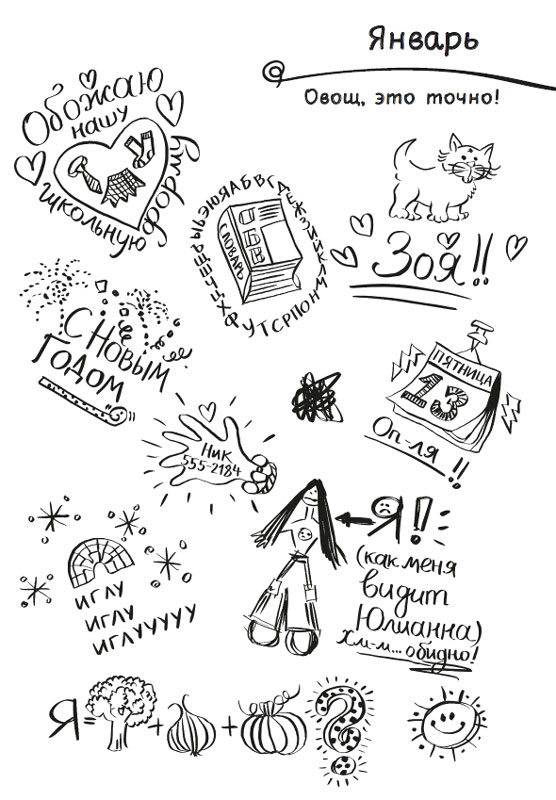 Январь
Овощ, это точно!
Обожаю
нашу
школьную
форму
АБВГДЕЖЗИЙКЛМНОПРСТУФ
СЛОВАРЬ
АБВ
Зоя!!
С Новым
Годом
ПЯТНИЦА
13
Оп-ля!!
Ник
555-2184
Я!!
(как меня
видит
Юлианна)
Хм-м... обидно!
иглу
иглу
иглууууу
Я= + + ?